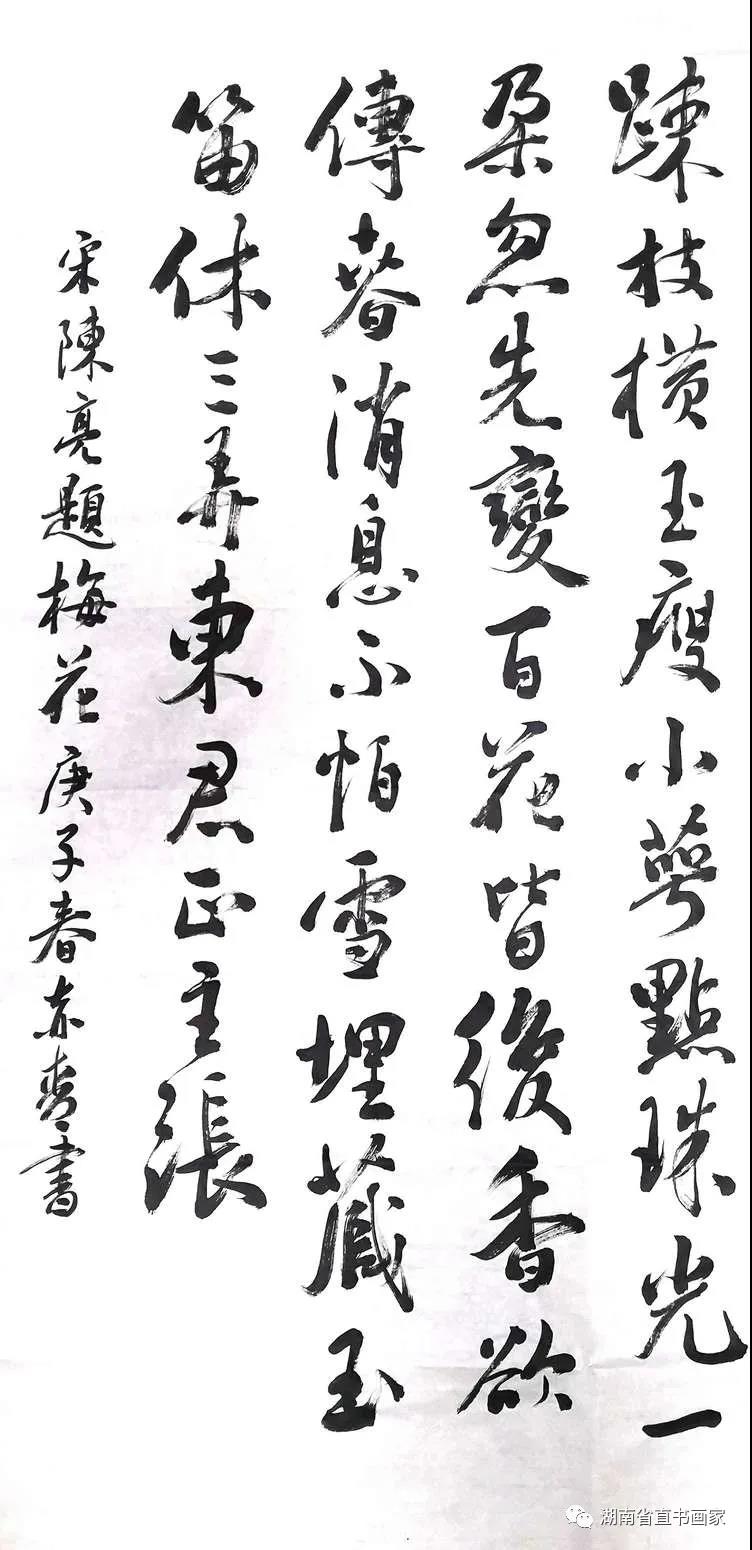 疎枝横玉瘦小萼點珠光一
朵忽先變百花皆後香欲
傳春消息不怕雪埋藏玉
笛休三弄東君正主張
宋陳亮題梅花庚子春亦書
湖南省直书画家